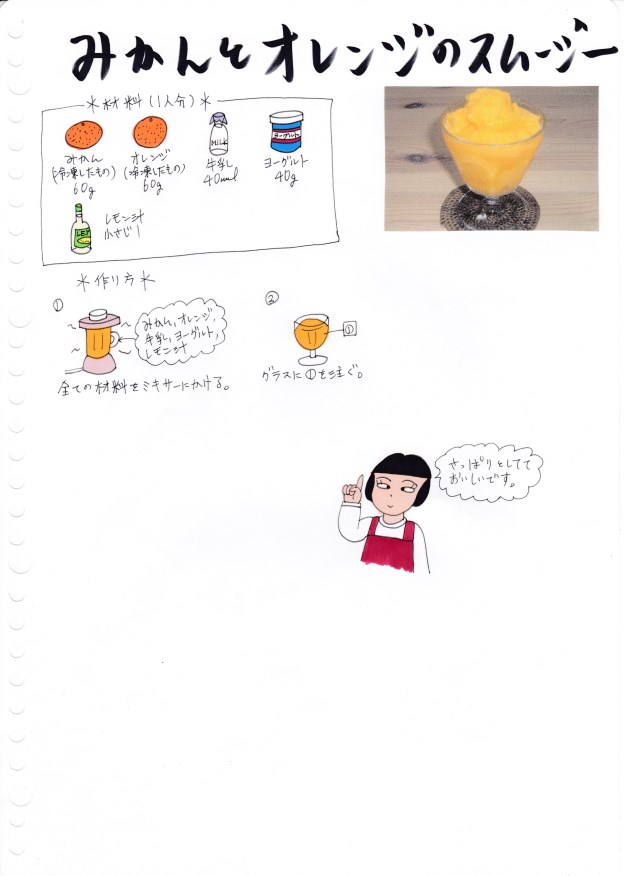 みかんとオレンジのスムージー
＊材料(1人分)＊
みかん
(冷凍したもの)
60g
オレンジ
(冷凍したもの)
60g
MILK
牛乳
40ml
ヨーグルト
ヨーグルト
40g
レモン汁
小さじ1
＊作り方＊
①
みかん,オレンジ,
牛乳,ヨーグルト,
レモン汁
全ての材料をミキサーにかける。
②
①
グラスに①を注ぐ。
さっぱりとしてて
おいしいです。